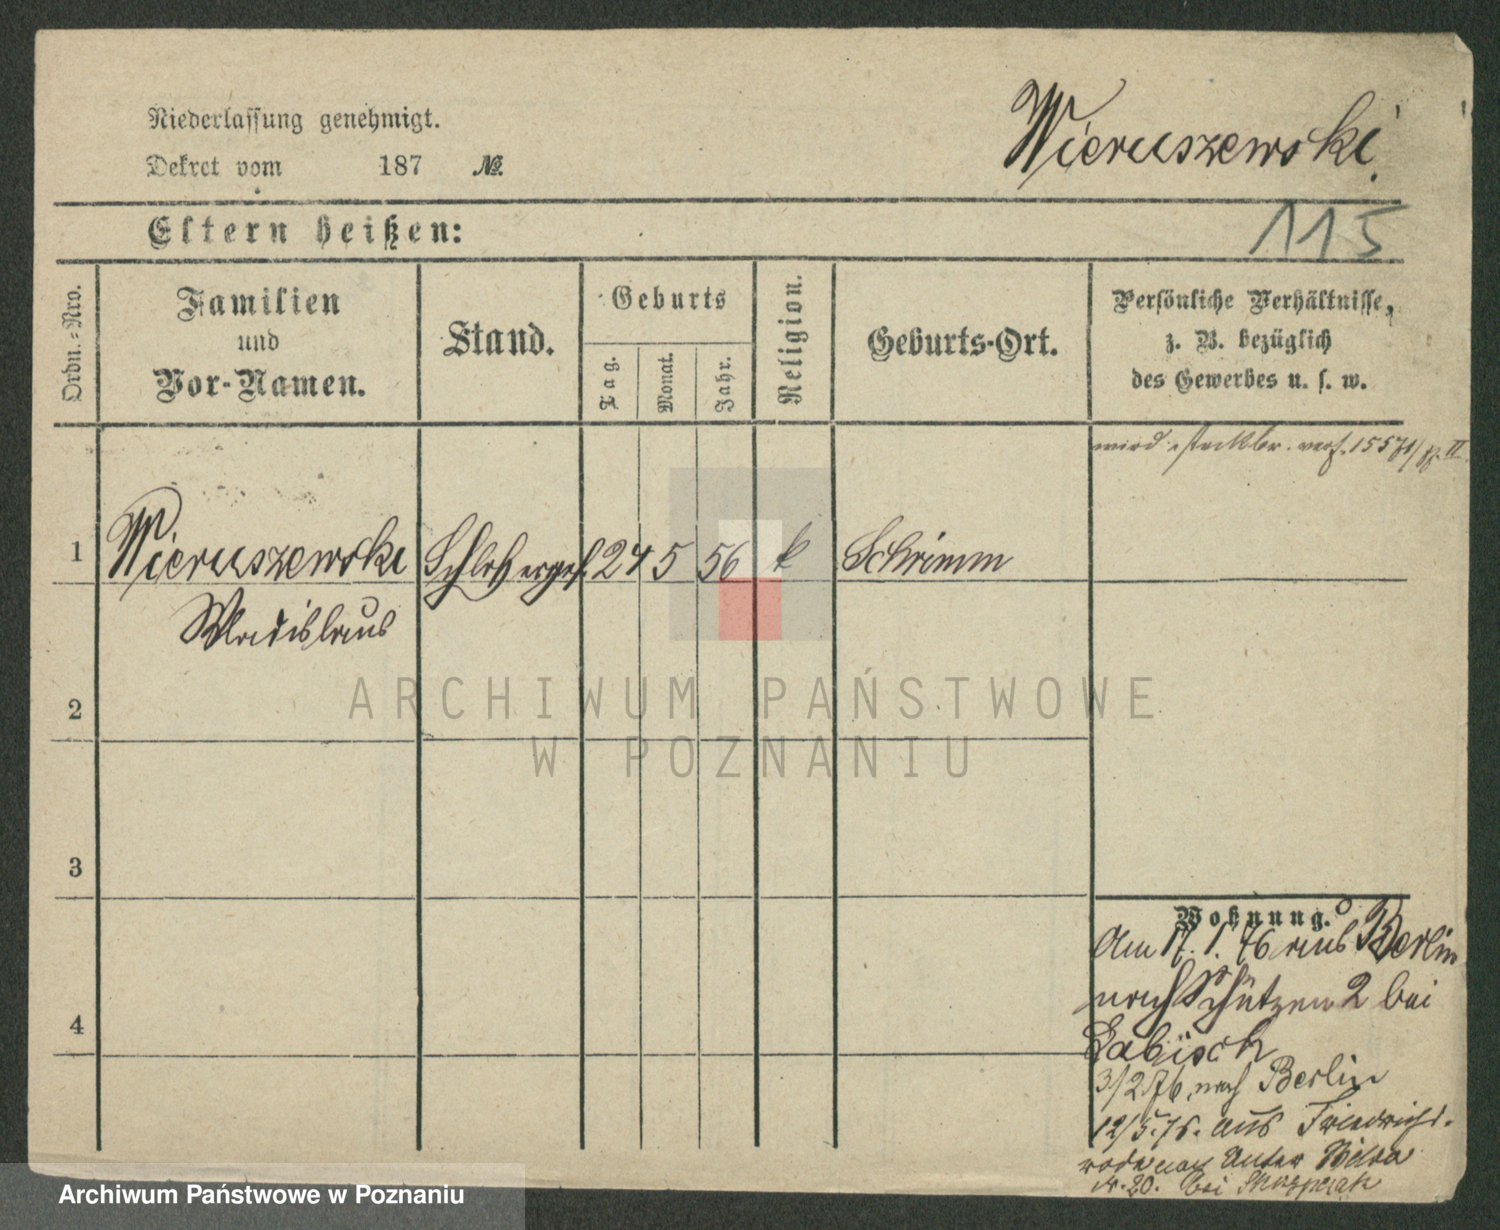 Niederlassung genehmigt.
Dekret vom 187 №.
Wieruszewski
Eltern heißen:
115
Ordn.-Nro.
Familien
und
Vor-Namen.
Stand.
Geburts
Tag.
Monat.
Jahr.
Religion.
Geburts-Ort.
Persönliche Verhältnisse,
z. B. bezüglich
des Gewerbes u. s. w.
wird steckbr. verf. 15571/ II
1 Wieruszewski Schlosserges. 24 5 56 k Schrimm
Wladislaus
2
3
4
ARCHIWUM PAŃSTWOWE
W POZNANIU
Wohnung.
Am 17. 1. 76 aus Berlin
nach Schützen 2 bei
Labisch
3/2 76 nach Berlin
12/5. 76. aus Friedrichs-
rode nach Unter Wilda
N. 20. bei
Archiwum Państwowe w Poznaniu